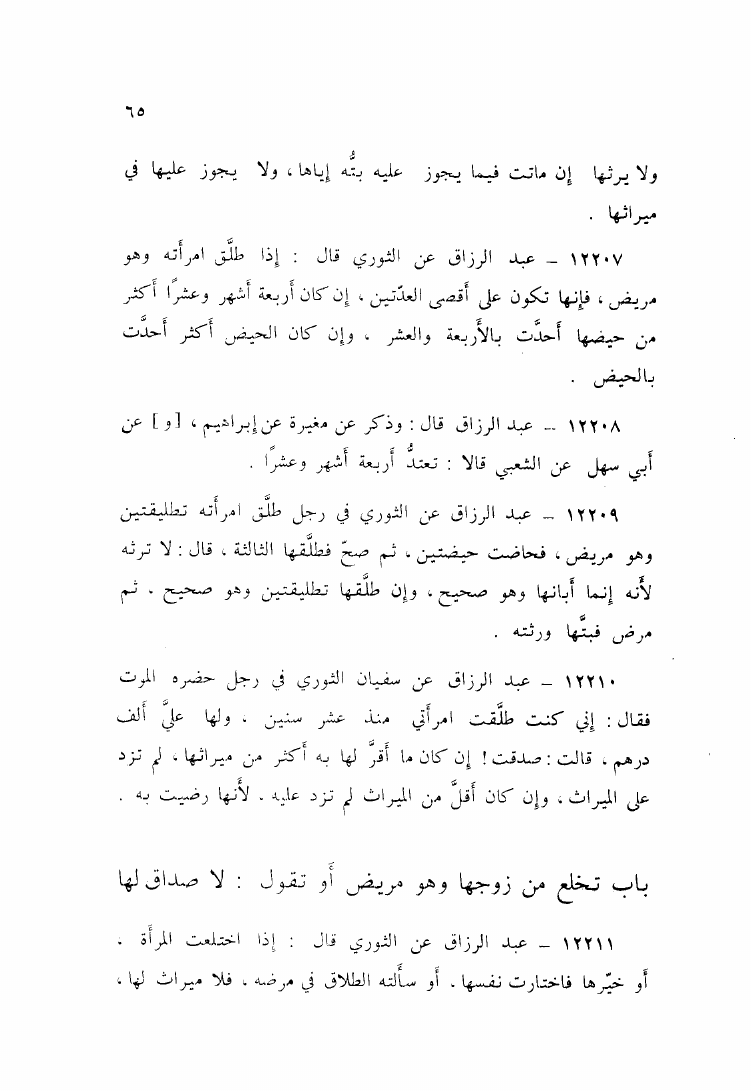 ٦٥
ولا يرثها إن ماتت فيما يجوز عليه بتُّه إياها، ولا يجوز عليها في
ميراثها .
١٢٢٠٧ – عبد الرزاق عن الثوري قال : إذا طلَّق امرأته وهو
مريض، فإنها تكون على أقصى العدّتين، إن كان أربعة أشهر وعشرًا أكثر
من حيضها أحدَّت بالأربعة والعشر ، وإن كان الحيض أكثر أحدَّت
بالحيض .
١٢٢٠٨ – عبد الرزاق قال : وذكر عن مغيرة عن إبراهيم، [و] عن
أبي سهل عن الشعبي قالا : تعتدُّ أربعة أشهر وعشرًا .
١٢٢٠٩ – عبد الرزاق عن الثوري في رجل طلَّق امرأته تطليقتين
وهو مريض، فحاضت حيضتين، ثم صحّ فطلَّقها الثالثة، قال : لا ترثه
لأنه إنما أبانها وهو صحيح، وإن طلَّقها تطليقتين وهو صحيح، ثم
مرض فبتَّها ورثته .
١٢٢١٠ – عبد الرزاق عن سفيان الثوري في رجل حضره الموت
فقال : إني كنت طلَّقت امرأتي منذ عشر سنين ، ولها عليَّ ألف
درهم، قالت : صدقت ! إن كان ما أقرَّ لها به أكثر من ميراثها، لم تزد
على الميراث، وإن كان أقلَّ من الميراث لم تزد عليه، لأنها رضيت به .
باب تختلع من زوجها وهو مريض أو تقول : لا صداق لها
١٢٢١١ – عبد الرزاق عن الثوري قال : إذا اختلعت المرأة ،
أو خيّرها فاختارت نفسها، أو سألته الطلاق في مرضه، فلا ميراث لها،